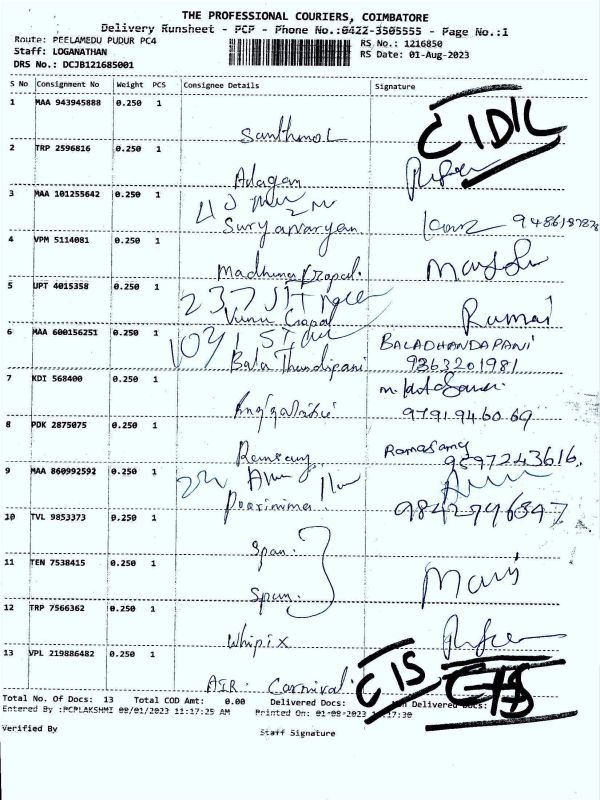 THE PROFESSIONAL COURIERS, COIMBATORE
Delivery Runsheet - PCP - Phone No.:0422-3505555 - Page No.:1
Route: PEELAMEDU PUDUR PC4
RS No.: 1216850
Staff: LOGANATHAN
RS Date: 01-Aug-2023
DRS No.: DCJB121685001
S No Consignment No Weight PCS Consignee Details Signature
1 MAA 943945888 0.250 1
CIDIC
2 TRP 2596816 0.250 1
Adagan
3 MAA 101255642 0.250 1
Suryanarayan
4 VPM 5114081 0.250 1
5 UPT 4015358 0.250 1
237
Venu Gopal
Ramai
6 MAA 600156251 0.250 1
BALADHANDAPANI
Bala Thandipani 9363201981
7 KDI 568400 0.250 1
9791946069
8 PDK 2875075 0.250 1
Ramasamy
9597243616
9 MAA 860992592 0.250 1
Poornima
9842796847
10 TVL 9853373 0.250 1
Span
11 TEN 7538415 0.250 1
Span
12 TRP 7566362 0.250 1
Whipix
13 VPL 219886482 0.250 1
CIS
CIS
AIR Carnival
Total No. Of Docs: 13 Total COD Amt: 0.00 Delivered Docs: Non Delivered Docs:
Entered By :PCPLAKSHMI 08/01/2023 11:17:25 AM Printed On: 01-08-2023 11:17:30
Verified By
Staff Signature